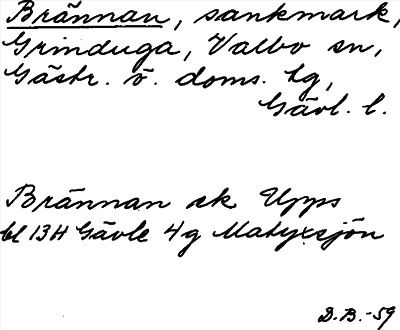 Brännan, sankmark,
Grinduga, Valbo sn,
Gästr. ö. doms. tg,
Gävl. l.
Brännan ek Upps
bl 13H Gävle 4g Matyxsjön
D.B.-59